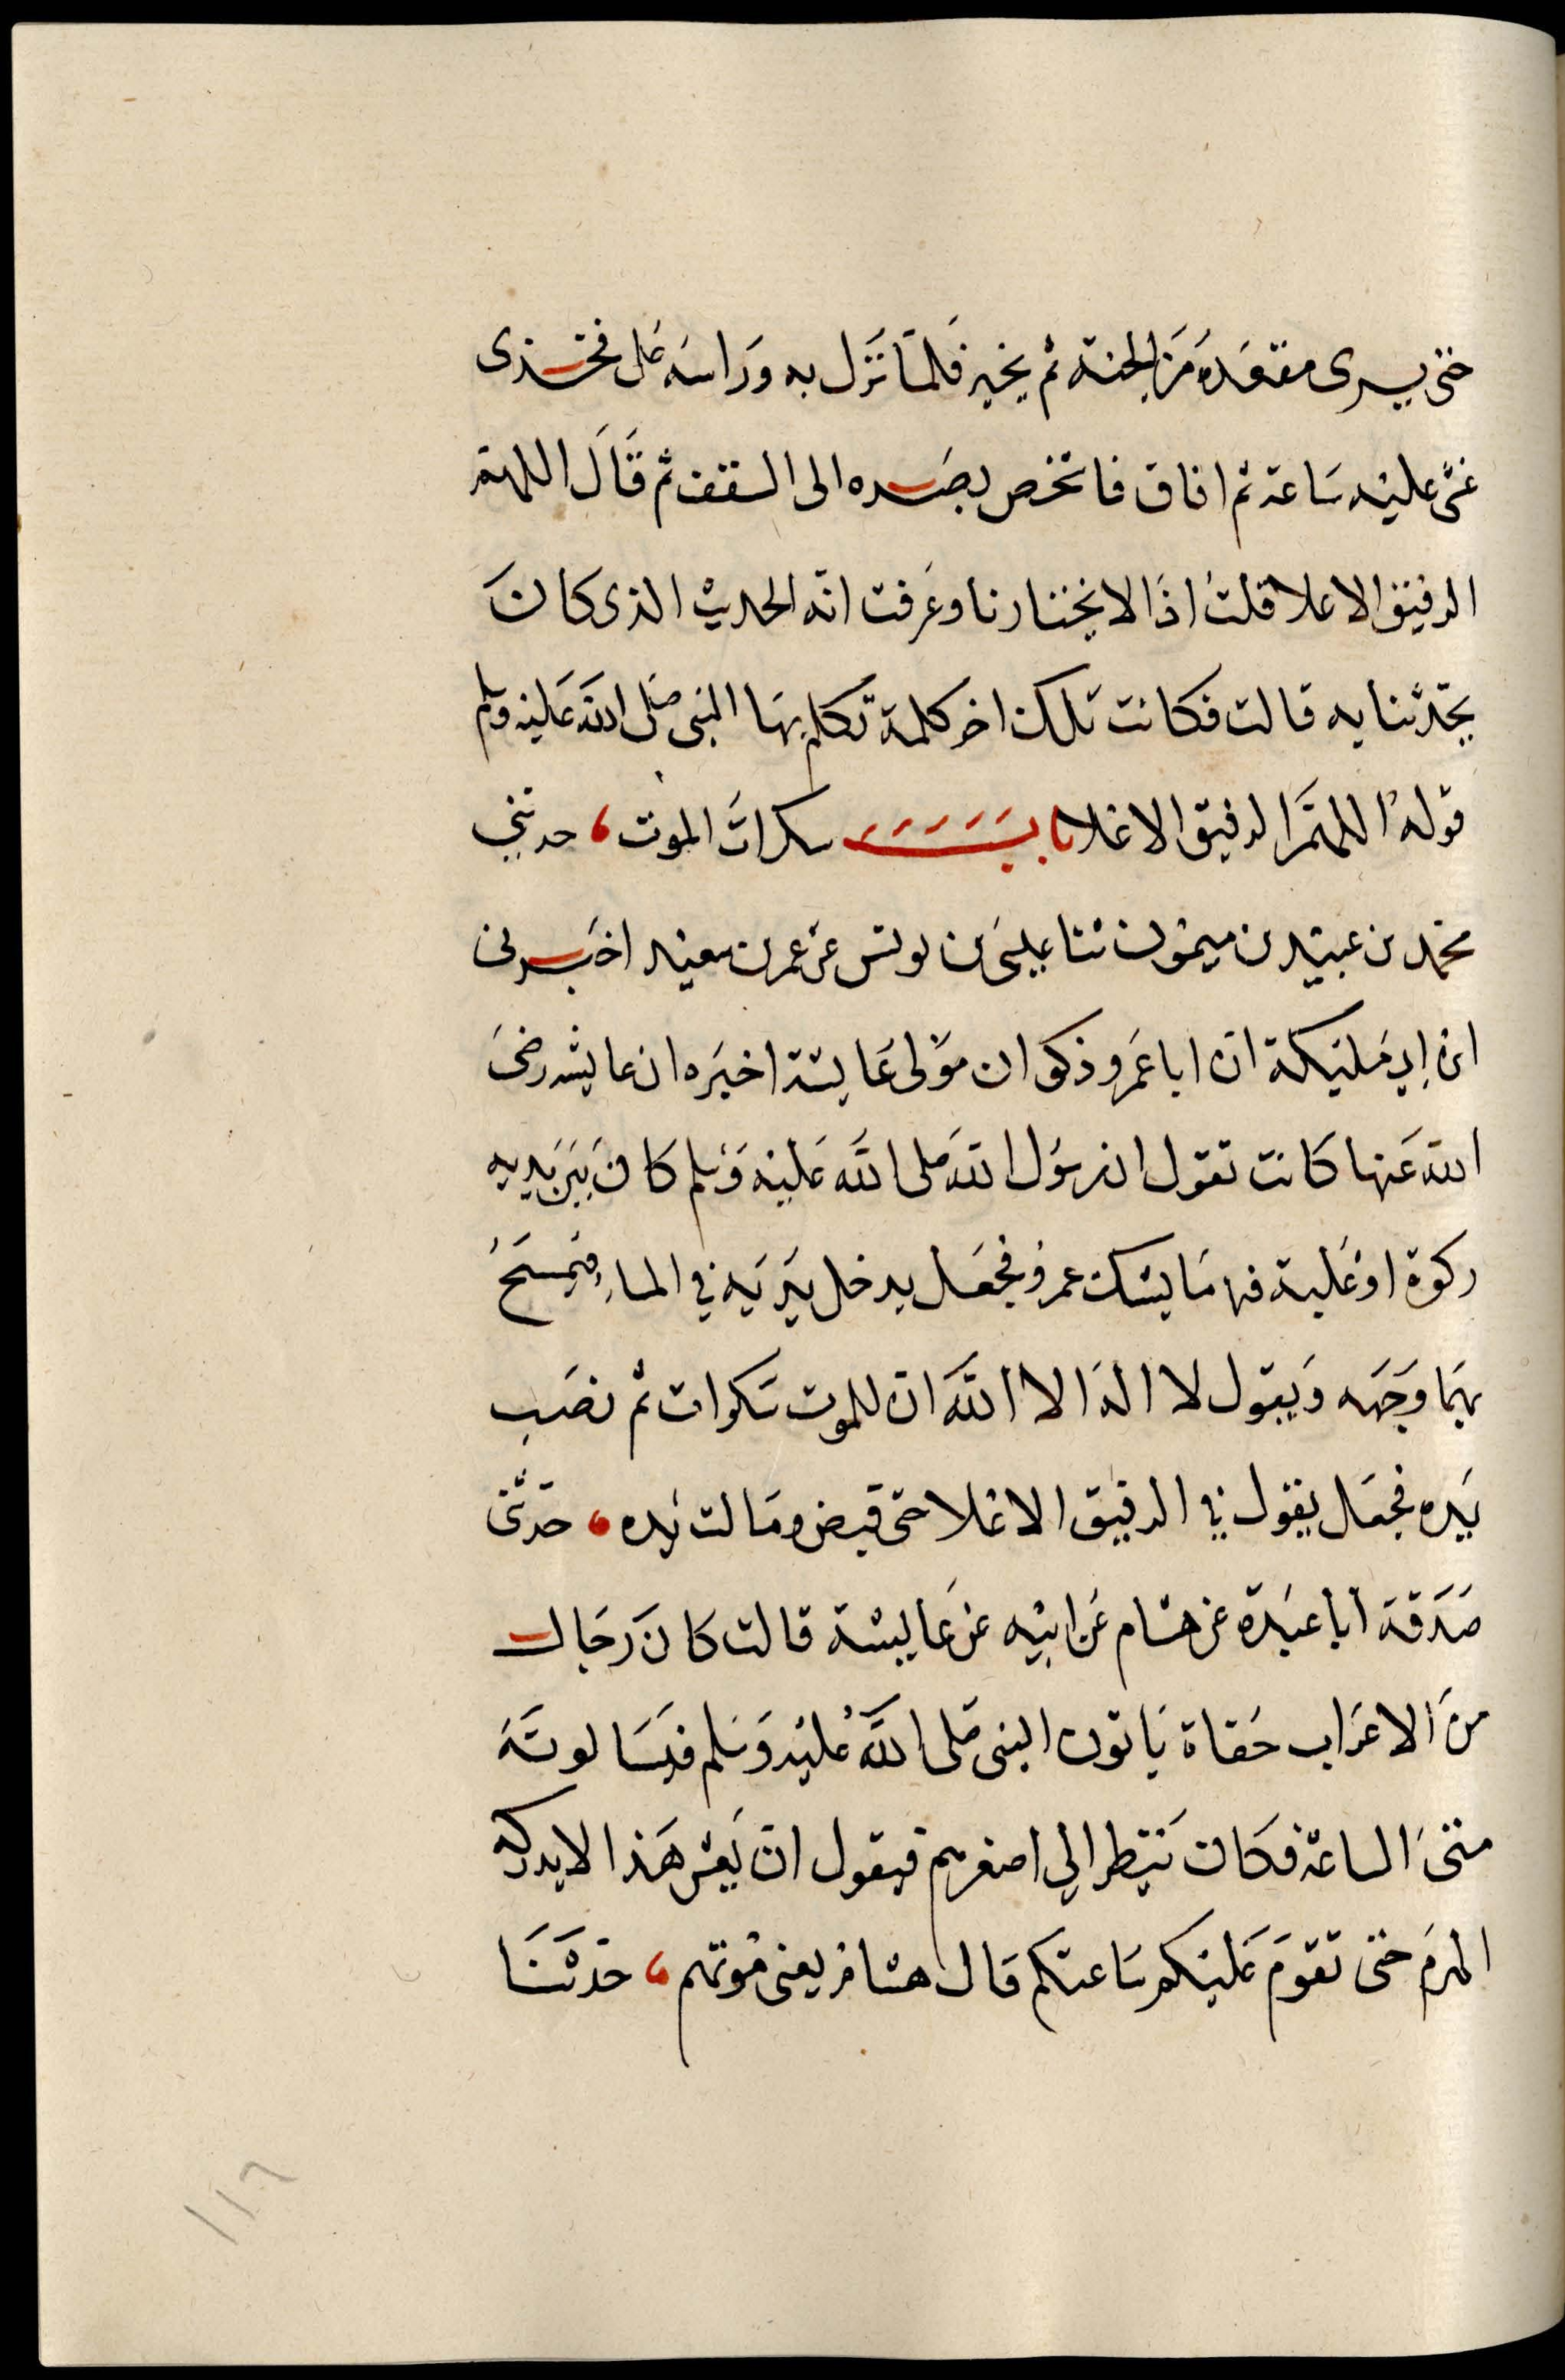 حتى يرى مقعده من الجنة ثم يخير فلما نزل به وراسه على فخذى
غشى عليه ساعة ثم افاق فاشخص بصره الى السقف ثم قال اللهم
الرفيق الاعلا قلت اذا لا يختارنا وعرفت انه الحديث الذى كان
يحدثنا به قالت فكانت تلك اخر كلمة تكلم بها النبى صلى الله عليه وسلم
قوله اللهم الرفيق الاعلا باب سكرات الموت، حدثني
محمد بن عبيد بن ميمون ثنا عيسى بن يونس عن عمر بن سعيد اخبرنى
ابن ابي مليكة ان ابا عمرو ذكوان مولى عايشة اخبره ان عايشه رضى
الله عنها كانت تقول ان رسول الله صلى الله عليه وسلم كان بين يديه
ركوة او علبة فيها ما يشك عمر فجعل يدخل يديه في الماء فيمسح
بهما وجهه ويقول لا اله الا الله ان للموت سكرات ثم نصب
يده فجعل يقول في الرفيق الاعلا حتى قبض ومالت يده، حدثنى
صدقة انا عبدة عن هشام عن ابيه عن عايشة قالت كان رجال
من الاعراب حفاة ياتون النبى صلى الله عليه وسلم فيسالونه
متى الساعة فكان ينظر الي اصغرهم فيقول ان يعش هذا لا يدركه
الهرم حتى تقوم عليكم ساعتكم قال هشام يعنى موتهم، حدثنا
١١٦